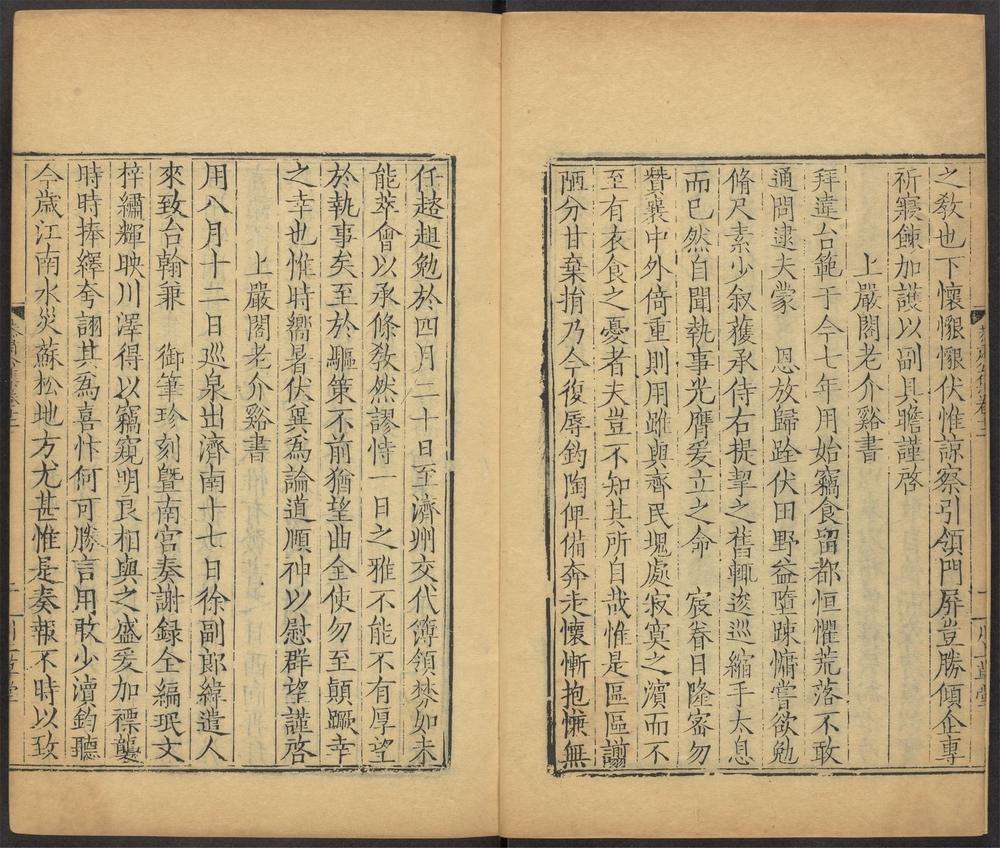 之教也下懷懇懇伏惟諒察引領門屏豈勝傾企專
祈寢餗加護以副具瞻謹啓
上嚴閣老介谿書
拜違台範于今七年用始竊食留都恒懼荒落不敢
通問逮夫蒙 恩放歸跧伏田野益墮踈慵嘗欲勉
脩尺素少叙獲承侍右提挈之舊輒逡巡縮手太息
而已然自聞執事光膺爰立之命 宸眷日隆密勿
贊襄中外倚重則用雖與齊民塊處寂寞之濱而不
至有衣食之憂者夫豈不知其所自哉惟是區區謭
陋分甘棄捐乃今復辱鈞陶俾備奔走懷慚抱慊無
任趑趄勉於四月二十日至濟州交代簿領棼如未
能萃會以承條敎然謬恃一日之雅不能不有厚望
於執事矣至於驅策不前猶望曲全使勿至顛蹶幸
之幸也惟時嚮暑伏兾爲論道順神以慰群望謹啓
上嚴閣老介谿書
用八月十二日巡泉出濟南十七日徐副郎緯遣人
來致台翰兼 御筆珍刻曁南宮奏謝録全編珉文
梓繡輝映川澤得以竊窺明良相與之盛爰加褾襲
時時捧繹夸詡其爲喜忭何可勝言用敢少瀆鈞聽
今歲江南水災蘇松地方尤甚惟是奏報不時以致